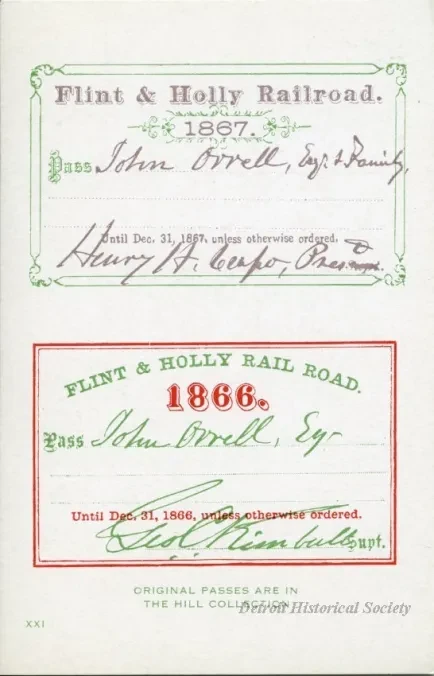 Flint & Holly Railroad.
1867.
Pass John Orrell, Esqr. & Family,
Until Dec. 31, 1867, unless otherwise ordered.
Henry H. Crapo, Prest.
FLINT & HOLLY RAIL ROAD.
1866.
Pass John Orrell, Esqr
Until Dec. 31, 1866, unless otherwise ordered.
Geo. C. Kimball Supt.
ORIGINAL PASSES ARE IN
THE HILL COLLECTION
Detroit Historical Society
XXI